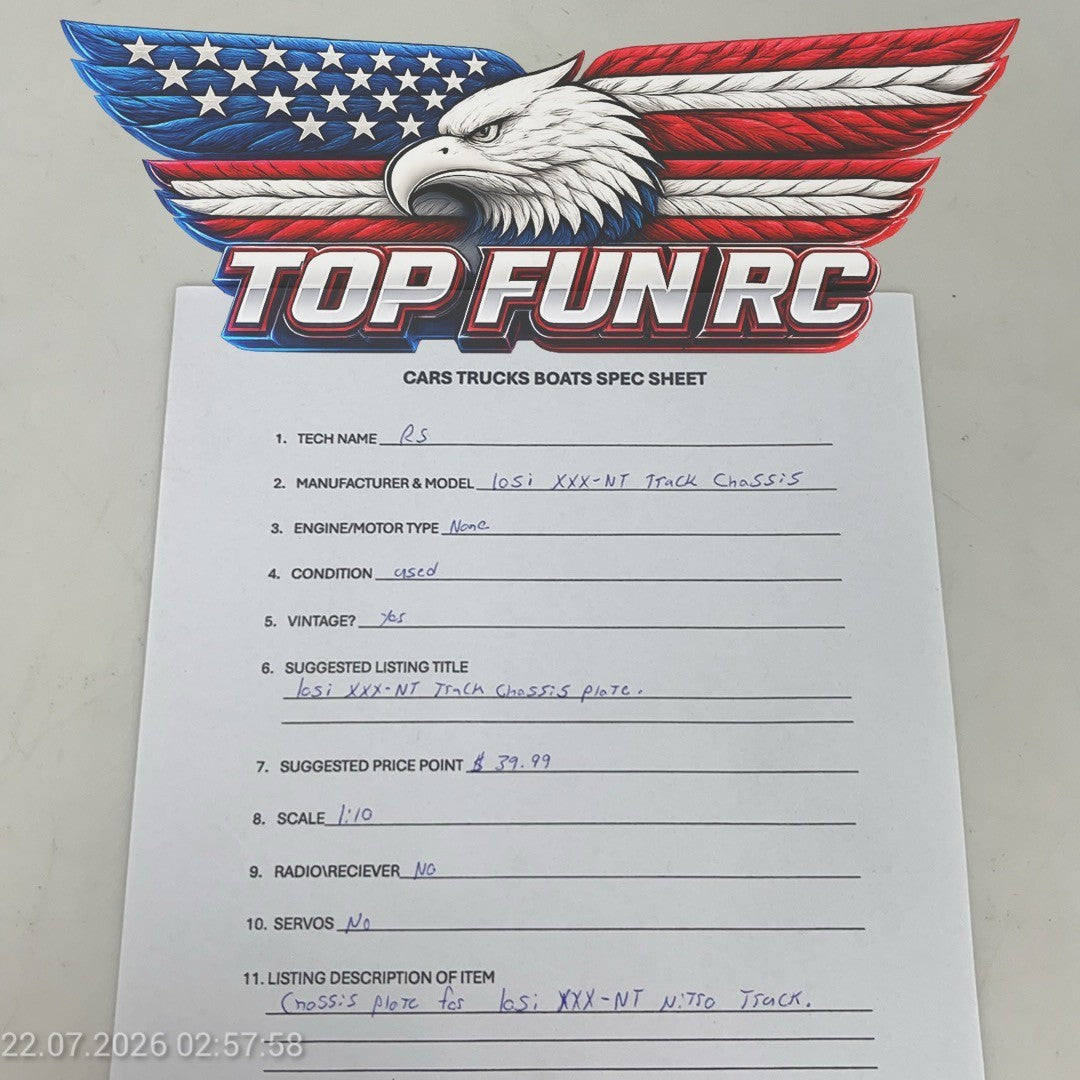 TOP FUN RC
CARS TRUCKS BOATS SPEC SHEET
1. TECH NAME RS
2. MANUFACTURER & MODEL losi XXX-NT Track Chassis
3. ENGINE/MOTOR TYPE None
4. CONDITION used
5. VINTAGE? yes
6. SUGGESTED LISTING TITLE
losi XXX-NT Truck Chassis plate.
7. SUGGESTED PRICE POINT $ 39.99
8. SCALE 1:10
9. RADIO\RECIEVER NO
10. SERVOS No
11. LISTING DESCRIPTION OF ITEM
Chassis plate for losi XXX-NT Nitro Truck.
22.07.2026 02:57:58